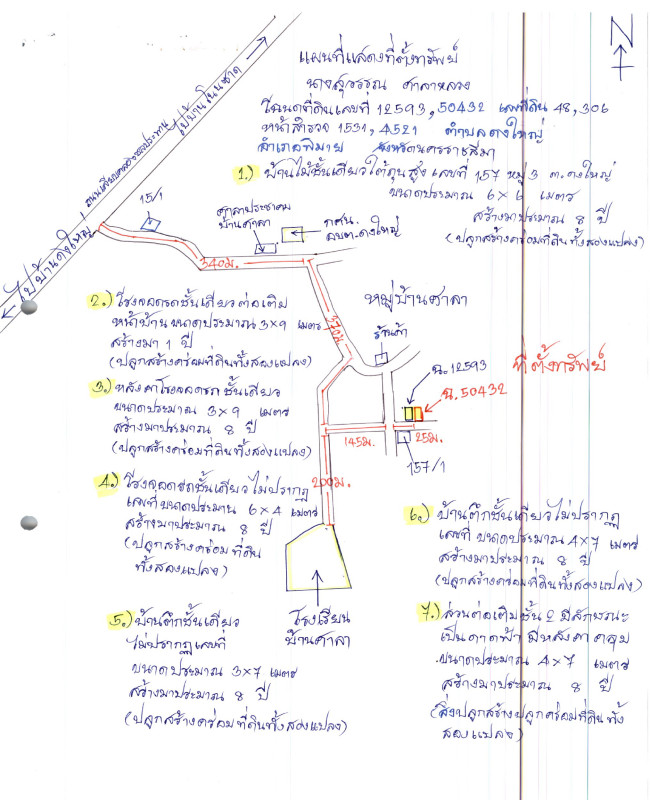 N
แผนที่แสดงที่ตั้งทรัพย์
นางสุวรรณ ศาลาหลวง
โฉนดที่ดินเลขที่ 12593, 50432 เลขที่ดิน 48, 306
หน้าสำรวจ 1531, 4521 ตำบลดงใหญ่
อำเภอพิมาย จังหวัดนครราชสีมา
1.) บ้านไม้ชั้นเดียวใต้ถุนสูง เลขที่ 157 หมู่ 3 ต.ดงใหญ่
ขนาดประมาณ 6 x 6 เมตร
สร้างมาประมาณ 8 ปี
(ปลูกสร้างคร่อมที่ดินทั้งสองแปลง)
ไปบ้านโนนชาด
ถนนเลียบคลองชลประทาน
ไปบ้านดงใหญ่
15/1
ศาลาประชาคม
บ้านศาลา
กศน.
อบต.ดงใหญ่
540ม.
370ม.
หมู่บ้านศาลา
ร้านค้า
2.) โรงจอดรถชั้นเดียวต่อเติม
หน้าบ้าน ขนาดประมาณ 3x9 เมตร
สร้างมา 1 ปี
(ปลูกสร้างคร่อมที่ดินทั้งสองแปลง)
ฉ.12593
ที่ตั้งทรัพย์
ฉ.50432
3.) หลังคาโรงจอดรถชั้นเดียว
ขนาดประมาณ 3x9 เมตร
สร้างมาประมาณ 8 ปี
(ปลูกสร้างคร่อมที่ดินทั้งสองแปลง)
145ม.
25ม.
157/1
200ม.
4.) โรงจอดรถชั้นเดียว ไม่ปรากฏ
เลขที่ ขนาดประมาณ 6x4 เมตร
สร้างมาประมาณ 8 ปี
(ปลูกสร้างคร่อมที่ดิน
ทั้งสองแปลง)
6.) บ้านตึกชั้นเดียวไม่ปรากฏ
เลขที่ ขนาดประมาณ 4x7 เมตร
สร้างมาประมาณ 8 ปี
(ปลูกสร้างคร่อมที่ดินทั้งสองแปลง)
5.) บ้านตึกชั้นเดียว
ไม่ปรากฏเลขที่
ขนาดประมาณ 3x7 เมตร
สร้างมาประมาณ 8 ปี
(ปลูกสร้างคร่อมที่ดินทั้งสองแปลง)
โรงเรียน
บ้านศาลา
7.) ส่วนต่อเติมชั้น 2 มีลักษณะ
เป็นดาดฟ้า มีหลังคาคลุม
ขนาดประมาณ 4x7 เมตร
สร้างมาประมาณ 8 ปี
(สิ่งปลูกสร้างปลูกคร่อมที่ดินทั้ง
สองแปลง)